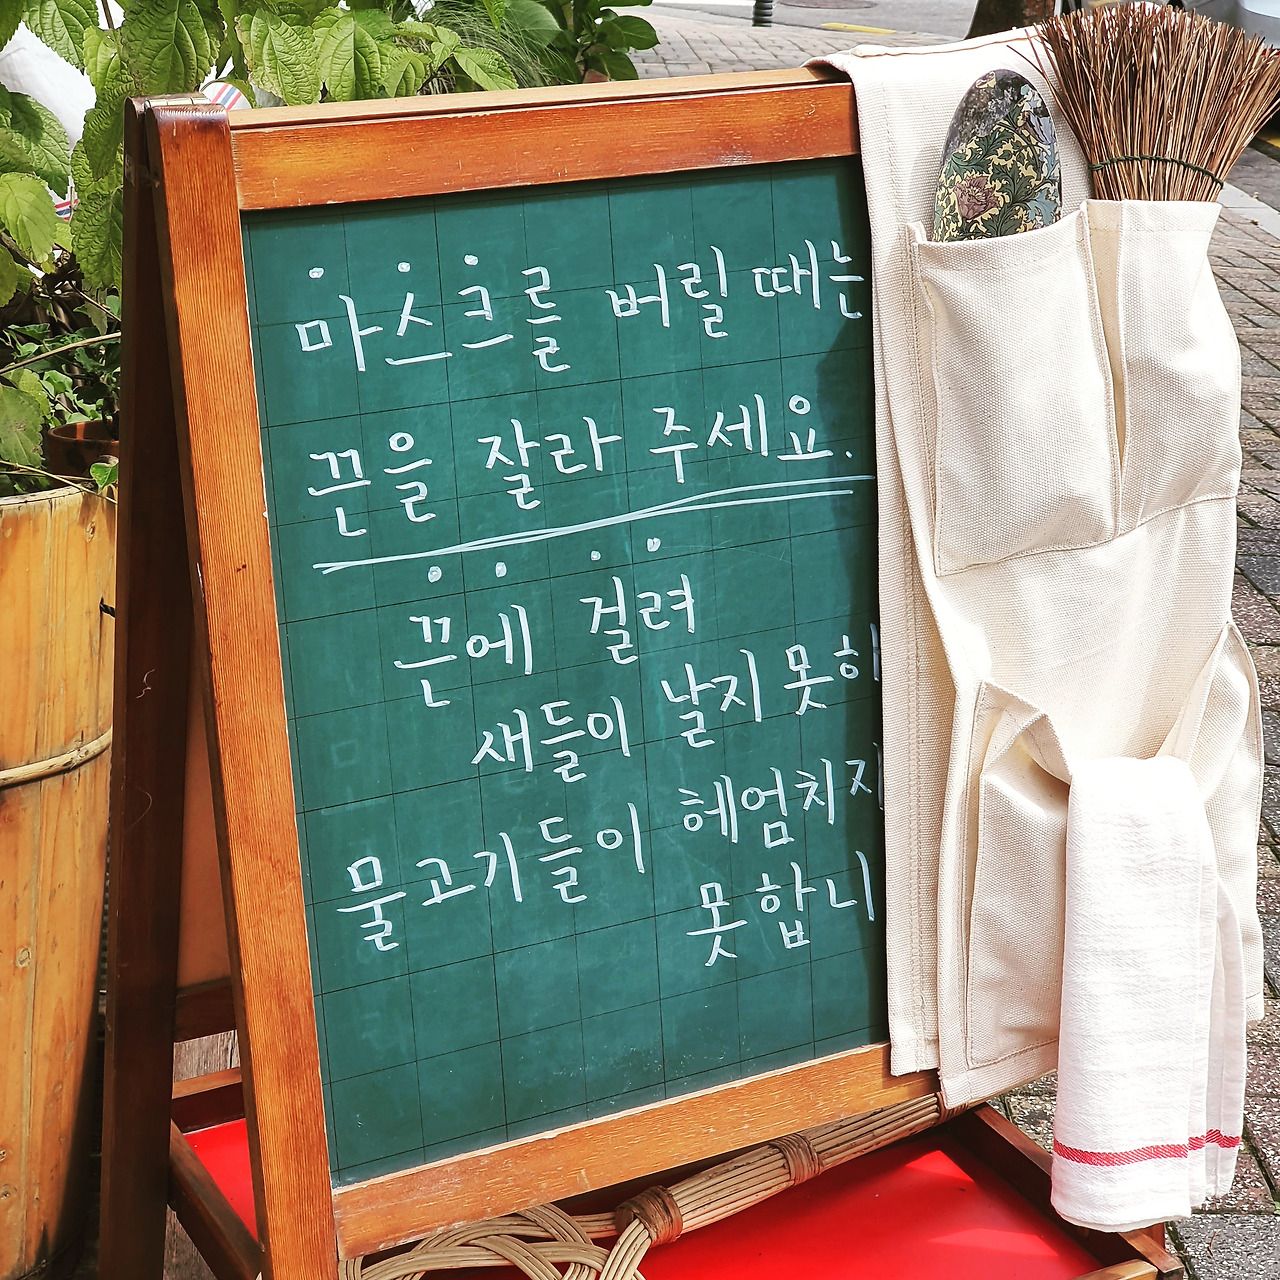 마스크를 버릴 때는
끈을 잘라 주세요.
끈에 걸려
새들이 날지 못하
물고기들이 헤엄치지
못합니